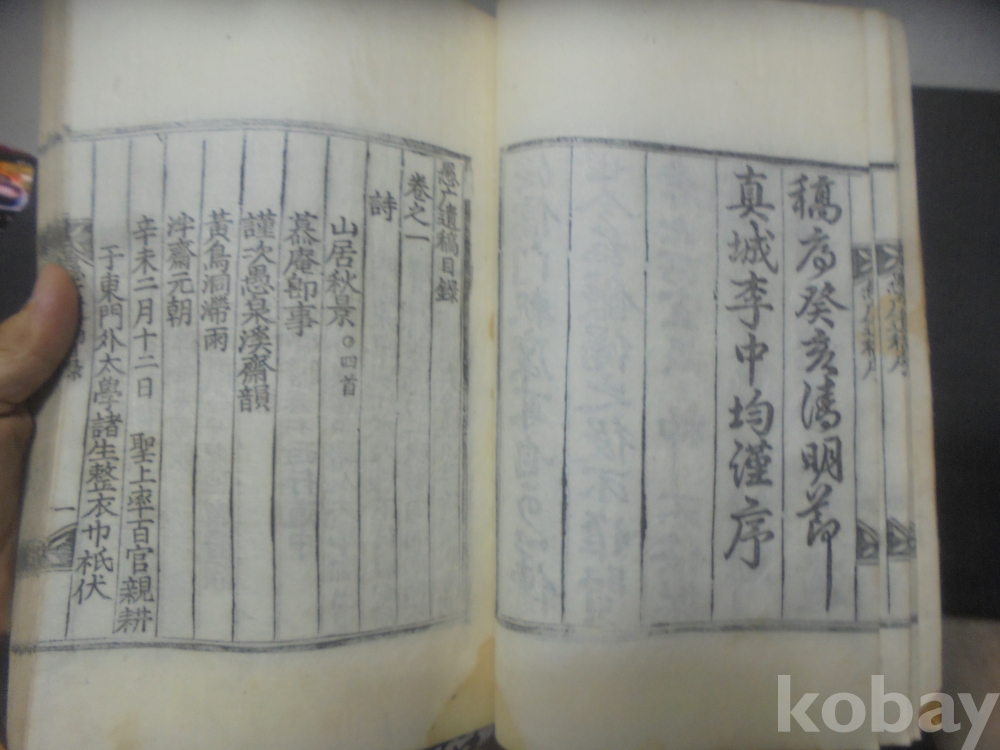 稿序癸亥清明節
真城李中均謹序
愚广遺稿目錄
卷之一
詩
山居秋景○四首
慕庵卽事
謹次愚泉溪齋韻
黃鳥洞滯雨
泮齋元朝
辛未二月十二日 聖上率百官親耕
于東門外太學諸生整衣巾祇伏
一
kobay